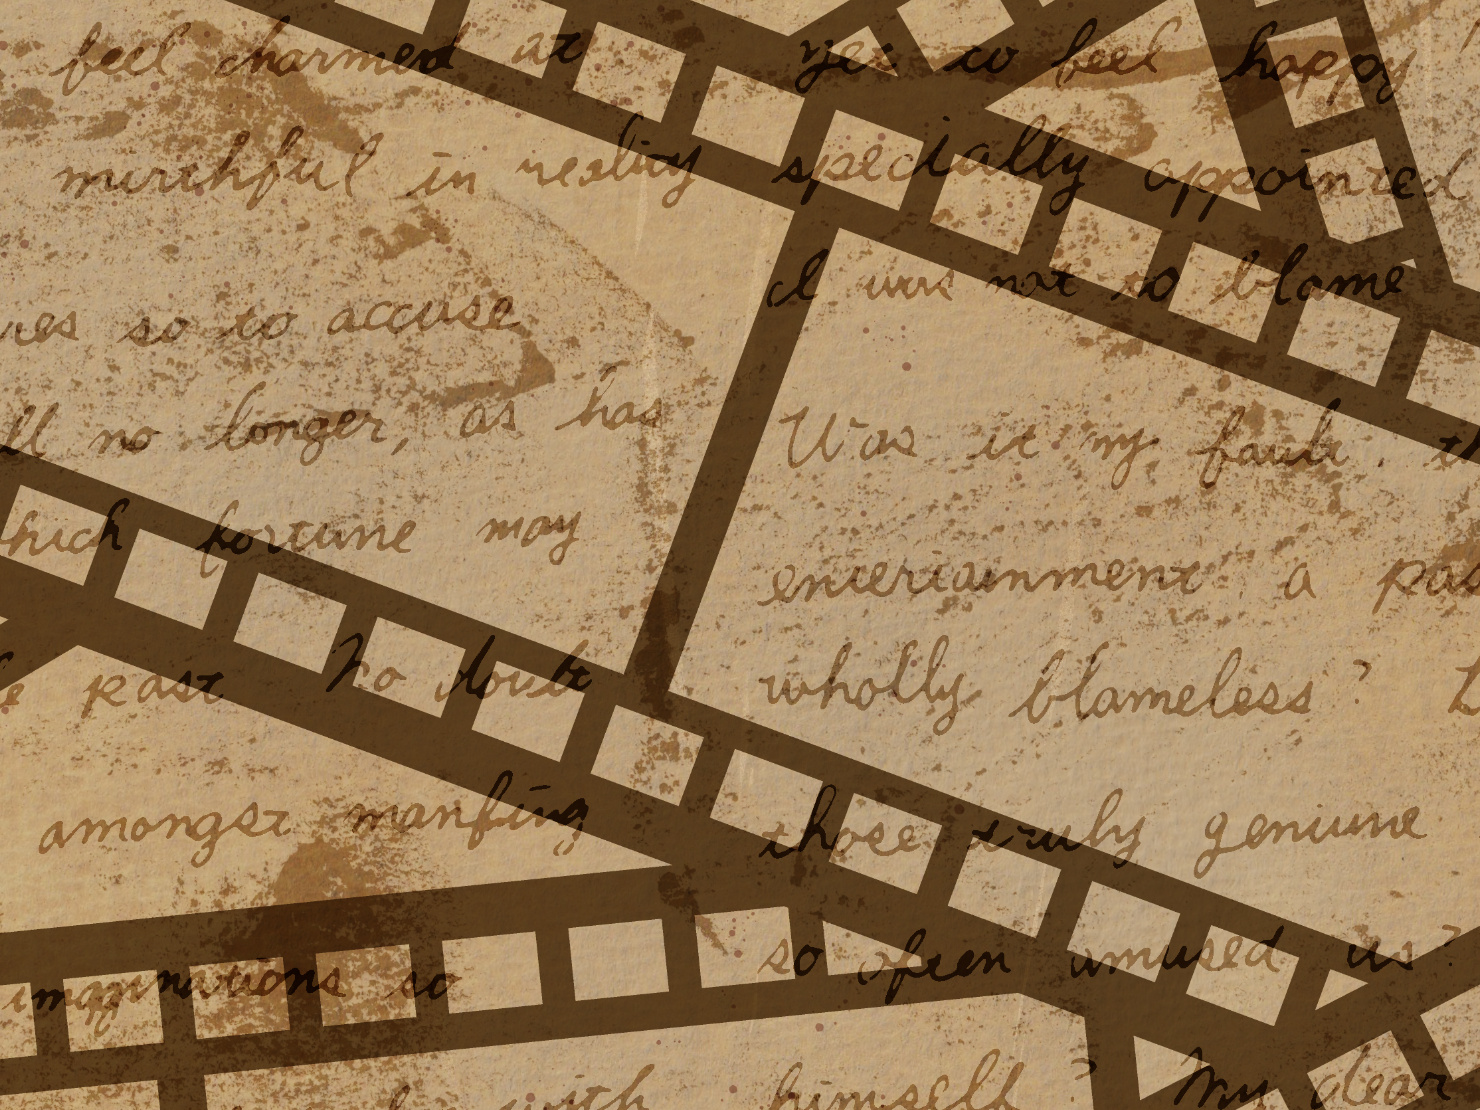 feel charmed at
mirthful in reality
res so to accuse
ll no longer, as has
hich fortune may
e past No doubt
amongst
imaginations so
with
yet to feel happy
specially appointed
I was not to blame
Was it my fault, th
entertainment a
wholly blameless?
those truly genuine
so often amused us?
himself? My dear